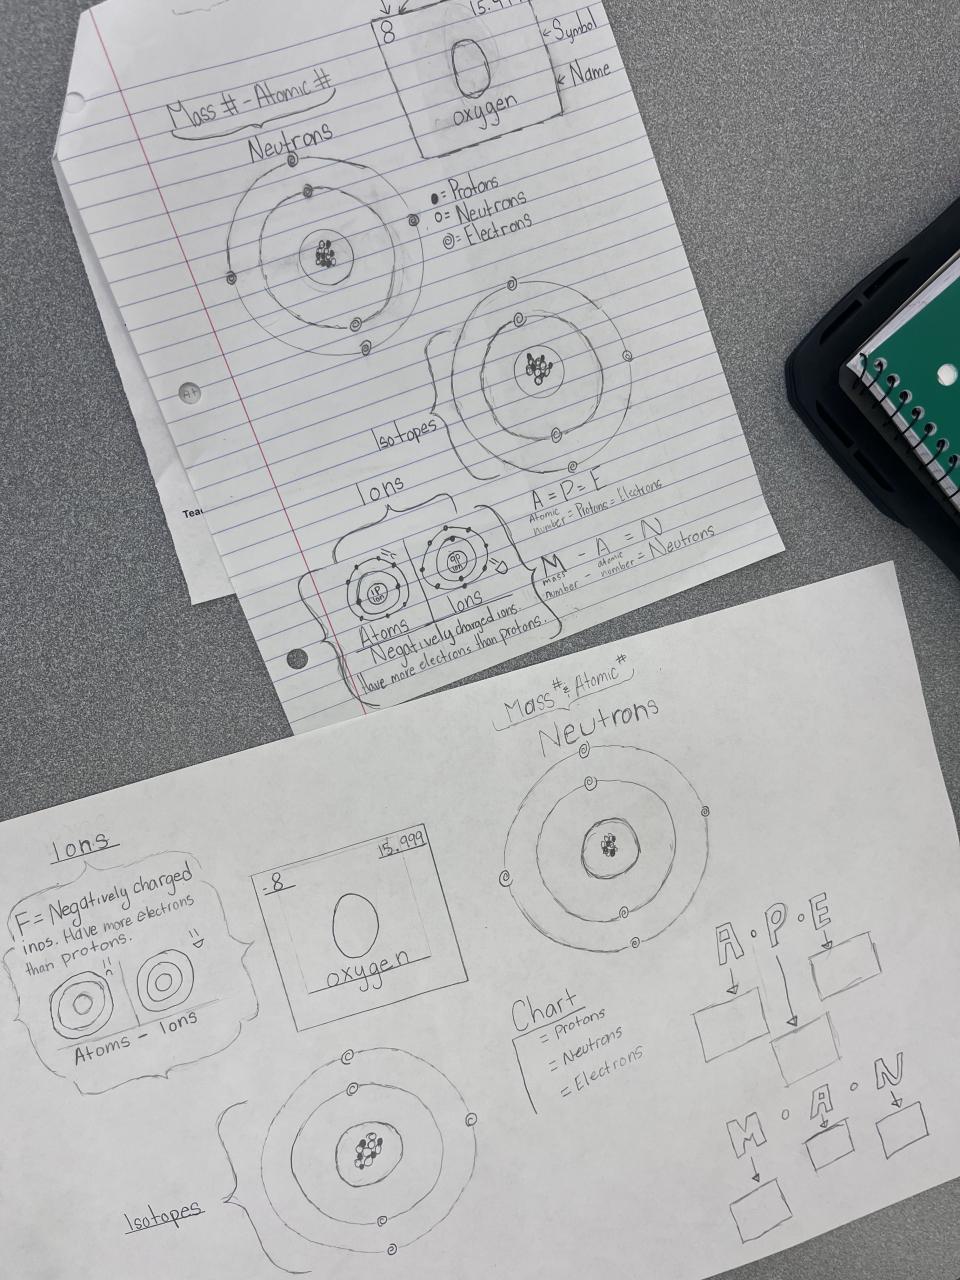 8
15.999
Symbol
Name
O
oxygen
Mass # - Atomic #
Neutrons
= Protons
= Neutrons
= Electrons
Isotopes
Ions
A = P = E
Atomic
number = Protons = Electrons
M - A = N
mass atomic
number - number = Neutrons
9P
ion
Atoms
Ions
Negatively charged ions.
Have more electrons than protons.
Teac
Mass # & Atomic #
Neutrons
Ions
F = Negatively charged
inos. Have more electrons
than protons.
Atoms - Ions
8
15.999
O
oxygen
Isotopes
Chart
= Protons
= Neutrons
= Electrons
A · P · E
M · A · N